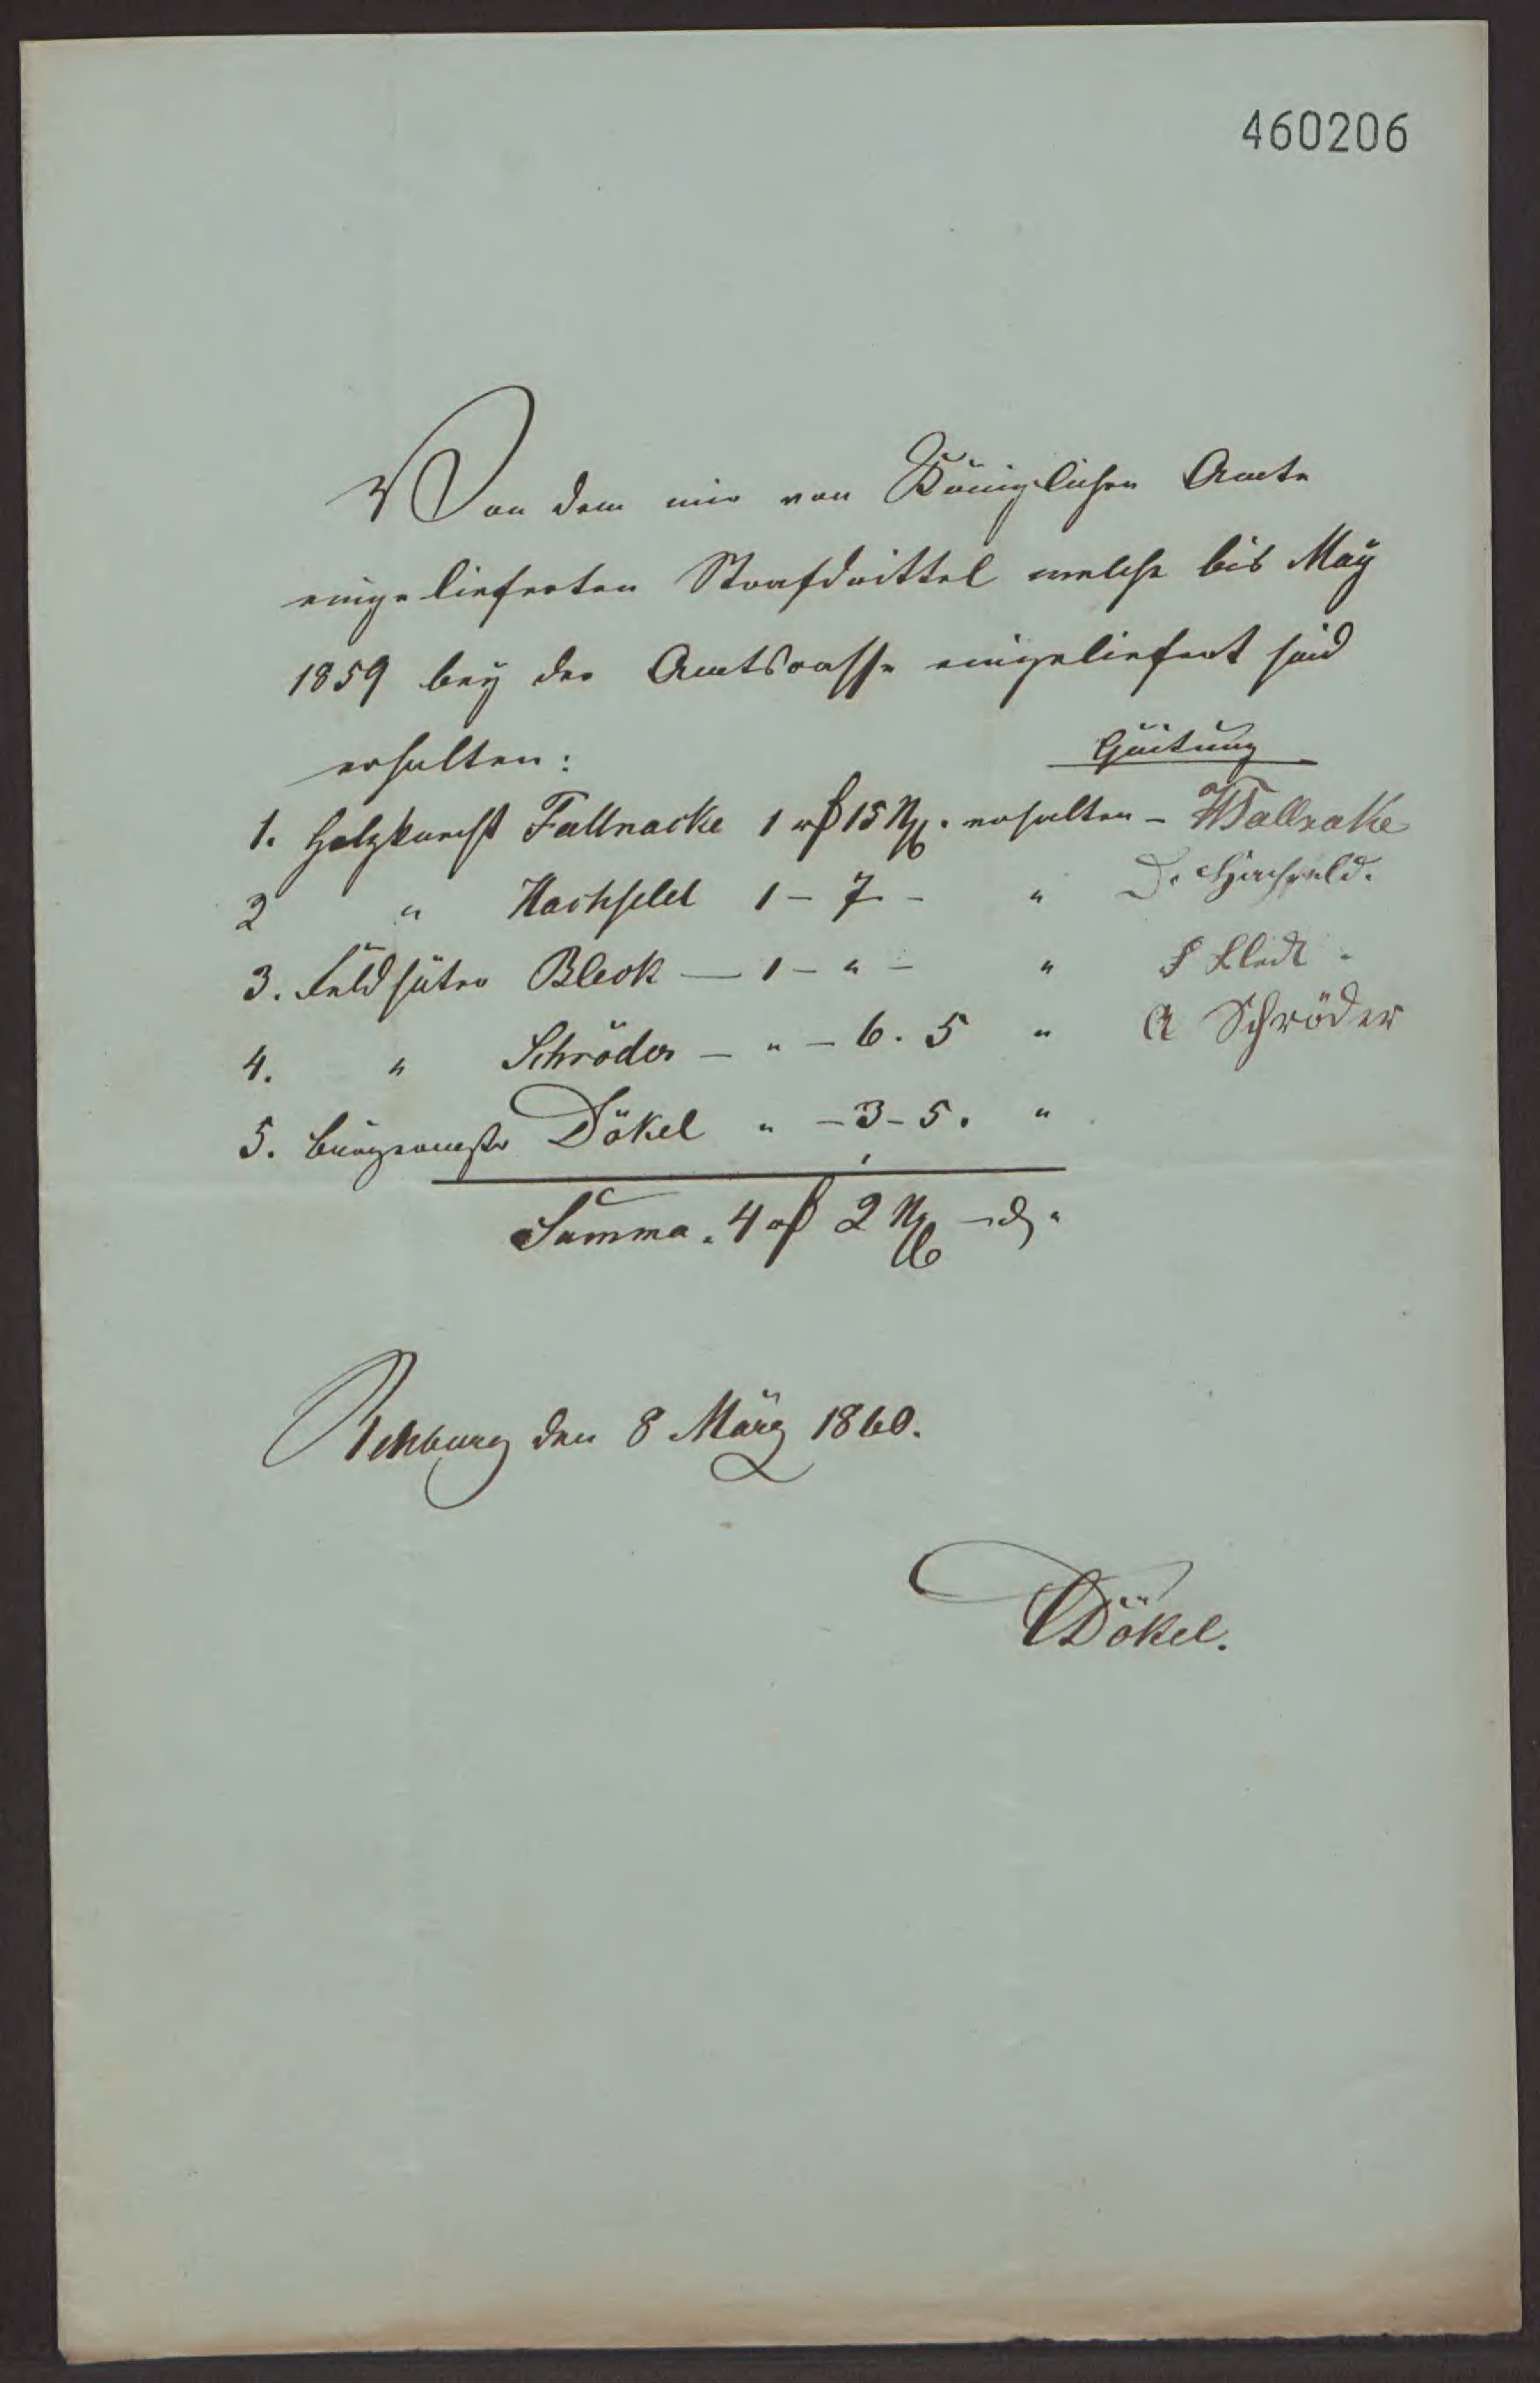 460206
Von dem mir von Königlichen Amte
eingelieferten Strafdrittel welche bis May
1859 bey der Amtscasse eingeliefert sind
erhalten:
Quitung
1. Holzknecht Fallnacke 1 rß 15 Ngr. erhalten - Wallrake
2 " Hachfeld 1 - 7 - " D. Hachfeld.
3. Feldhüter Bleck - 1 - " - " Bleck
4. " Schröder - " - 6. 5 " A Schröder
5. Bürgermstr Dökel " - 3 - 5. "
Summa. 4 rß 2 Ngr - d "
Rehburg den 8 März 1860.
Dökel.